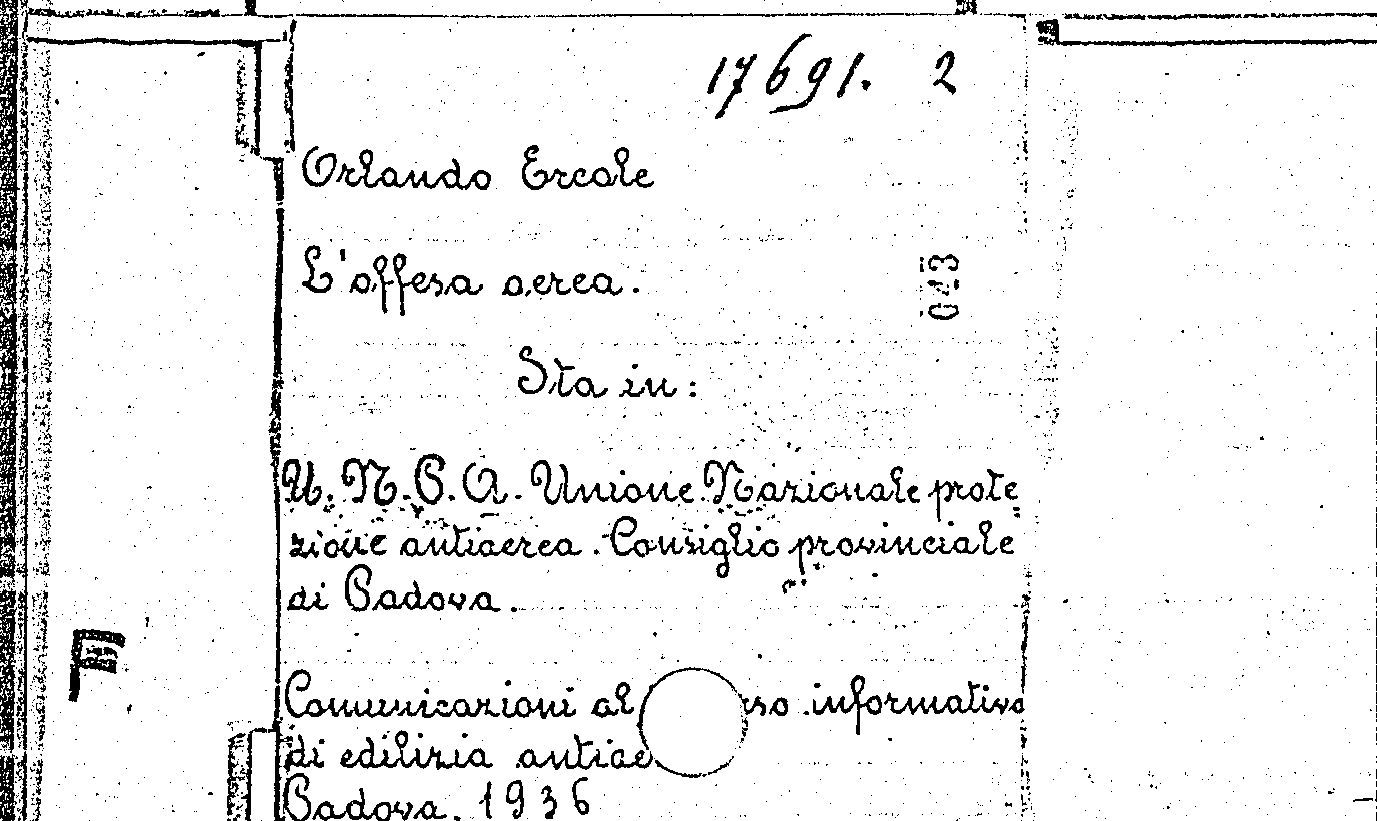 17691. 2
Orlando Ercole
L'offesa aerea.
043
Sta in:
U.N.P.A. Unione Nazionale prote=
zione antiaerea. Consiglio provinciale
di Padova.
Comunicazioni al informativo
di edilizia
Padova, 1936